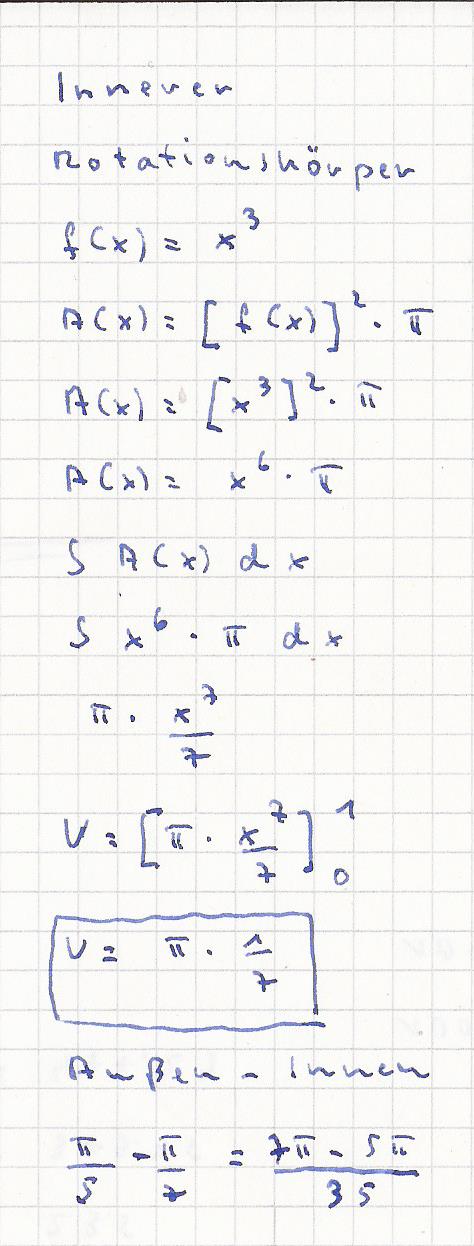 Innerer
Rotationskörper
f(x) = x³
A(x) = [f(x)]² · π
A(x) = [x³]² · π
A(x) = x⁶ · π
∫ A(x) dx
∫ x⁶ · π dx
π · x⁷/7
V = [π · x⁷/7]₀¹
V = π · 1/7
Außen - Innen
π/5 - π/7 = (7π - 5π)/35